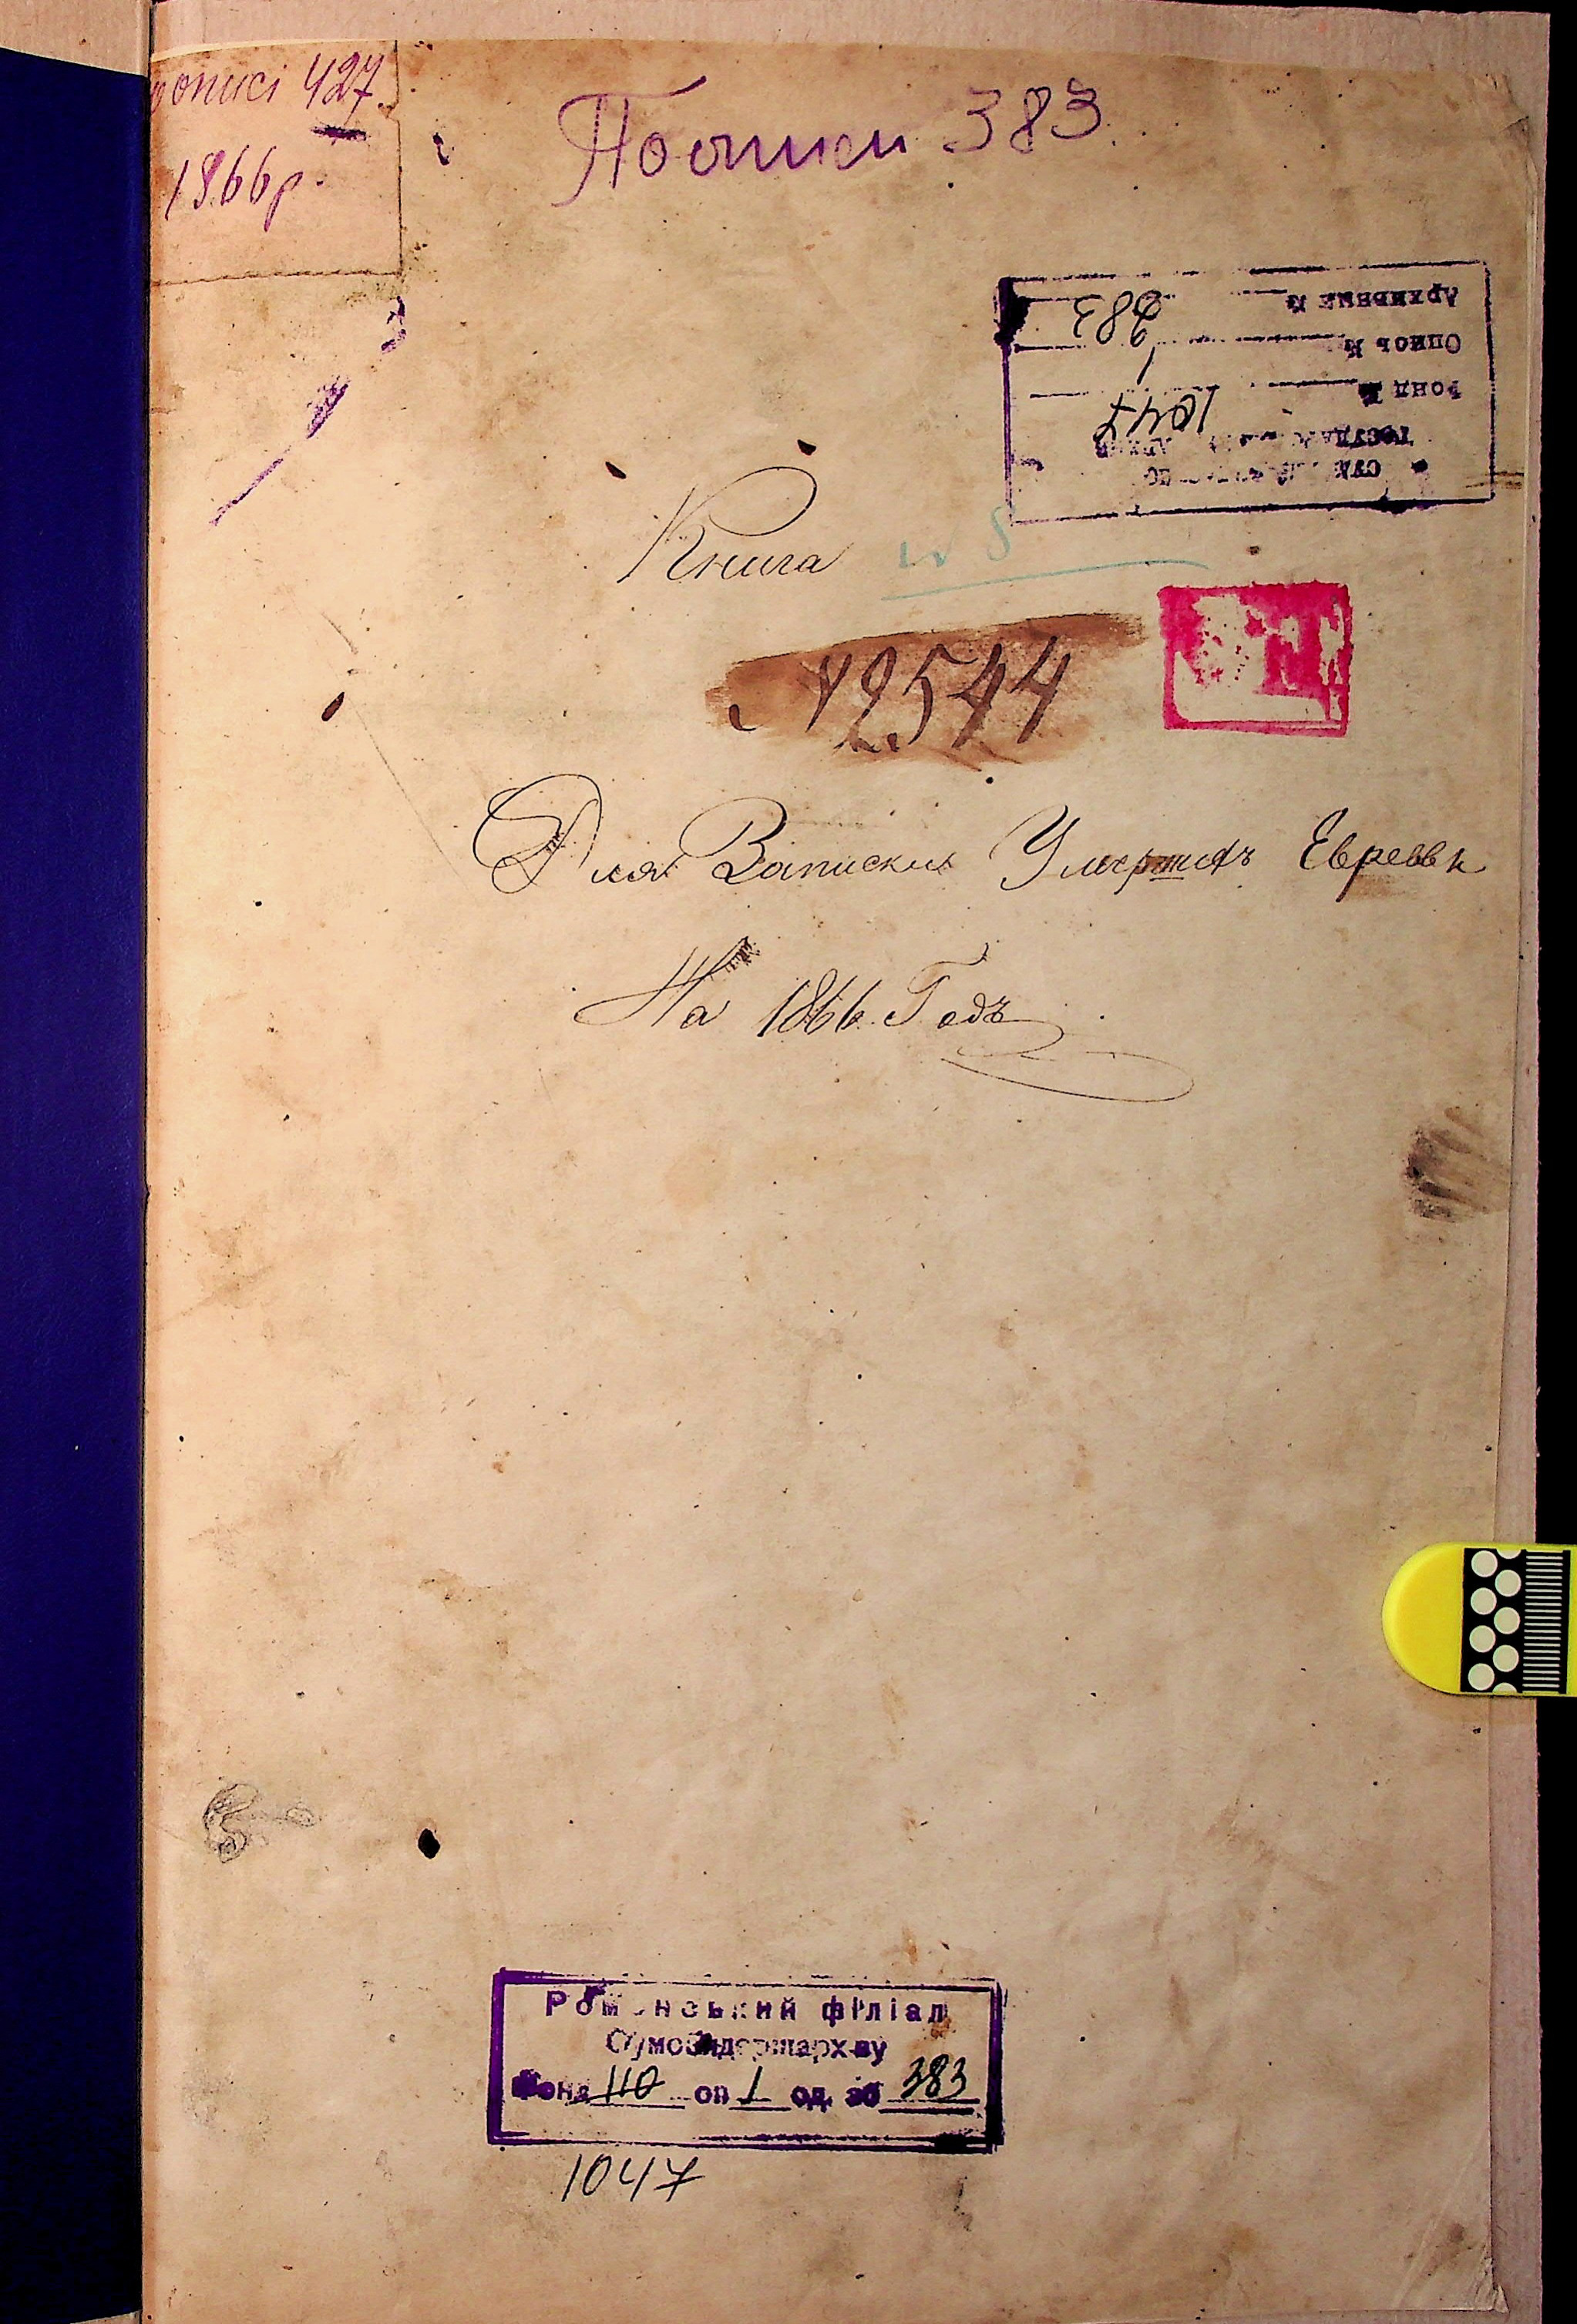 описі 427
1866р.
По описи 383
Архивный № 383
Опись № 1
Фонд № 1047
Книга № 8
№ 2544
Для Записки Умершихъ Евреевъ
На 1866 Годъ
Роменський філіал
Сумоблдержархіву
Фонд 110 оп 1 од. зб 383
1047